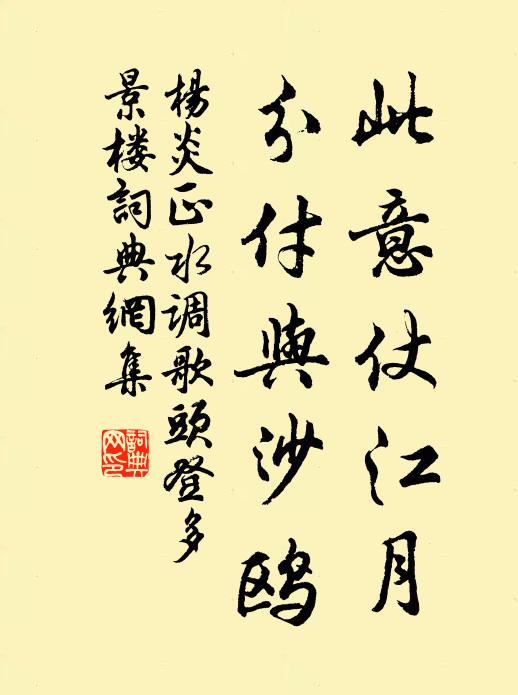 此意仗江月
分付與沙鷗
楊炎正水调歌頭登多
景楼詞典網集
詞典
网印